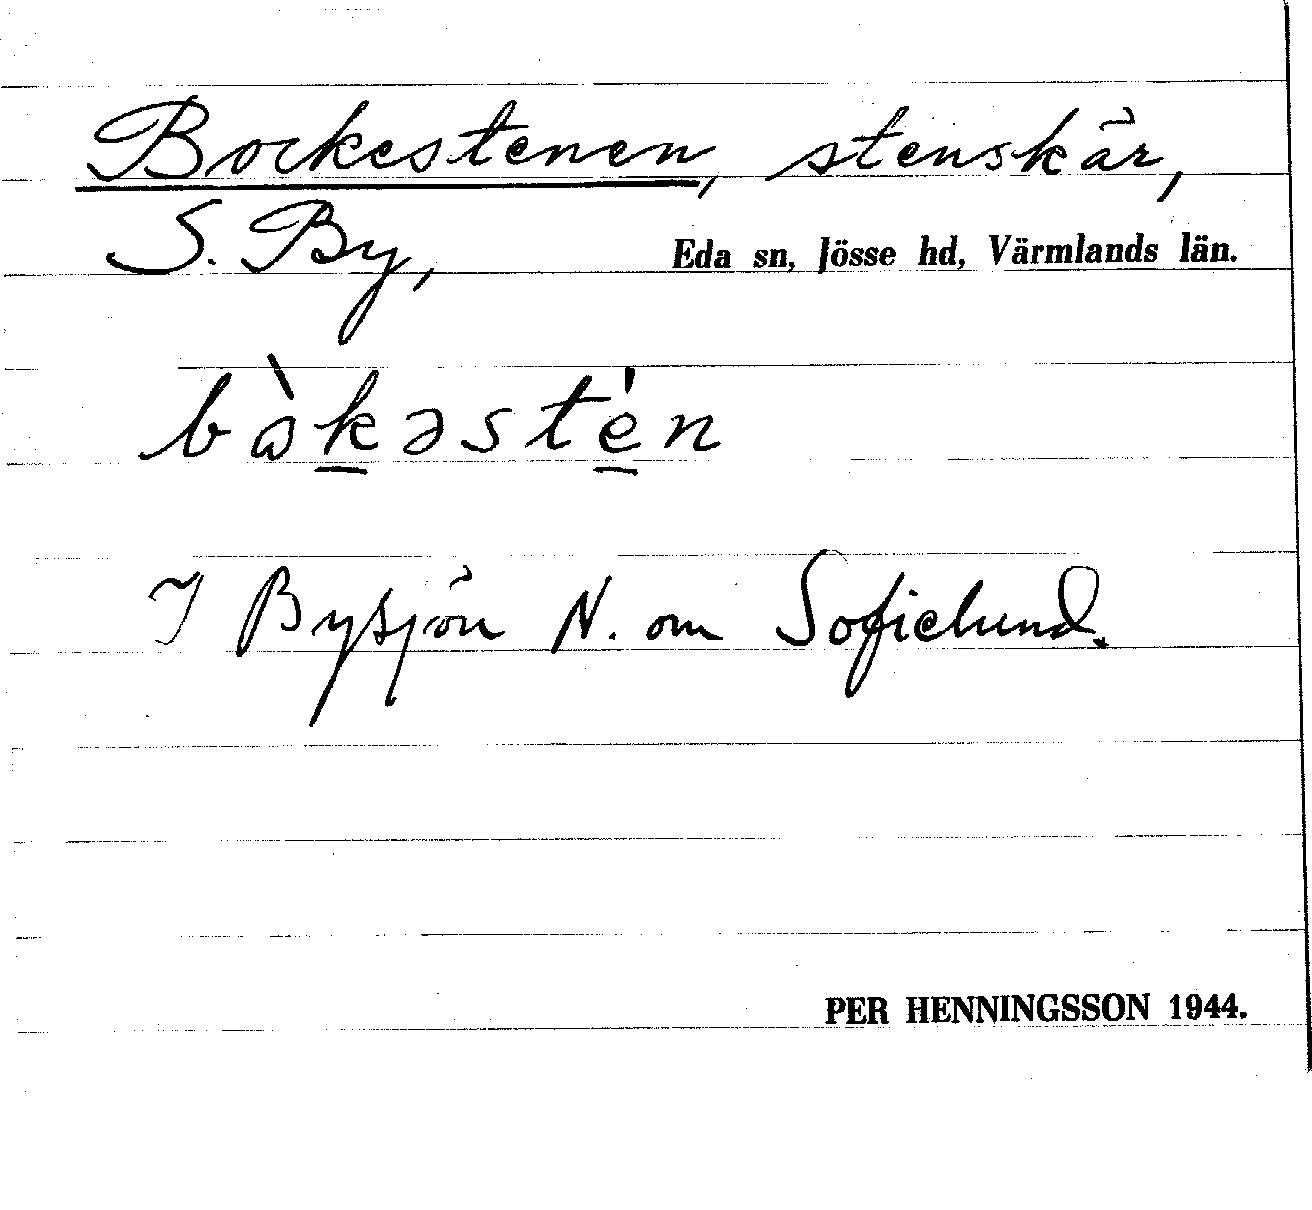 Bockestenen, stenskär,
S. By, Eda sn, Jösse hd, Värmlands län.
bɷ̀k̲əste̲̍n
I Bysjön N. om Sofielund.
PER HENNINGSSON 1944.